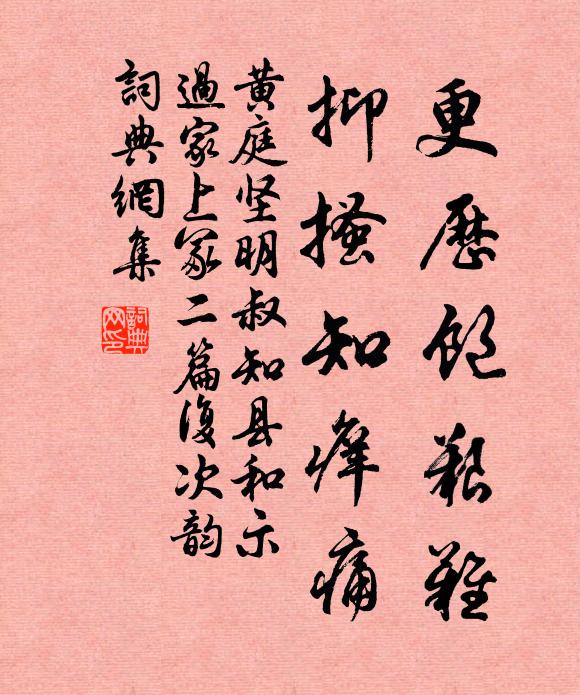 更歷飽艱難
抑搔知癢痛
黄庭坚明叔知县和示
過家上冢二篇復次韵
詞典網集
詞典网印